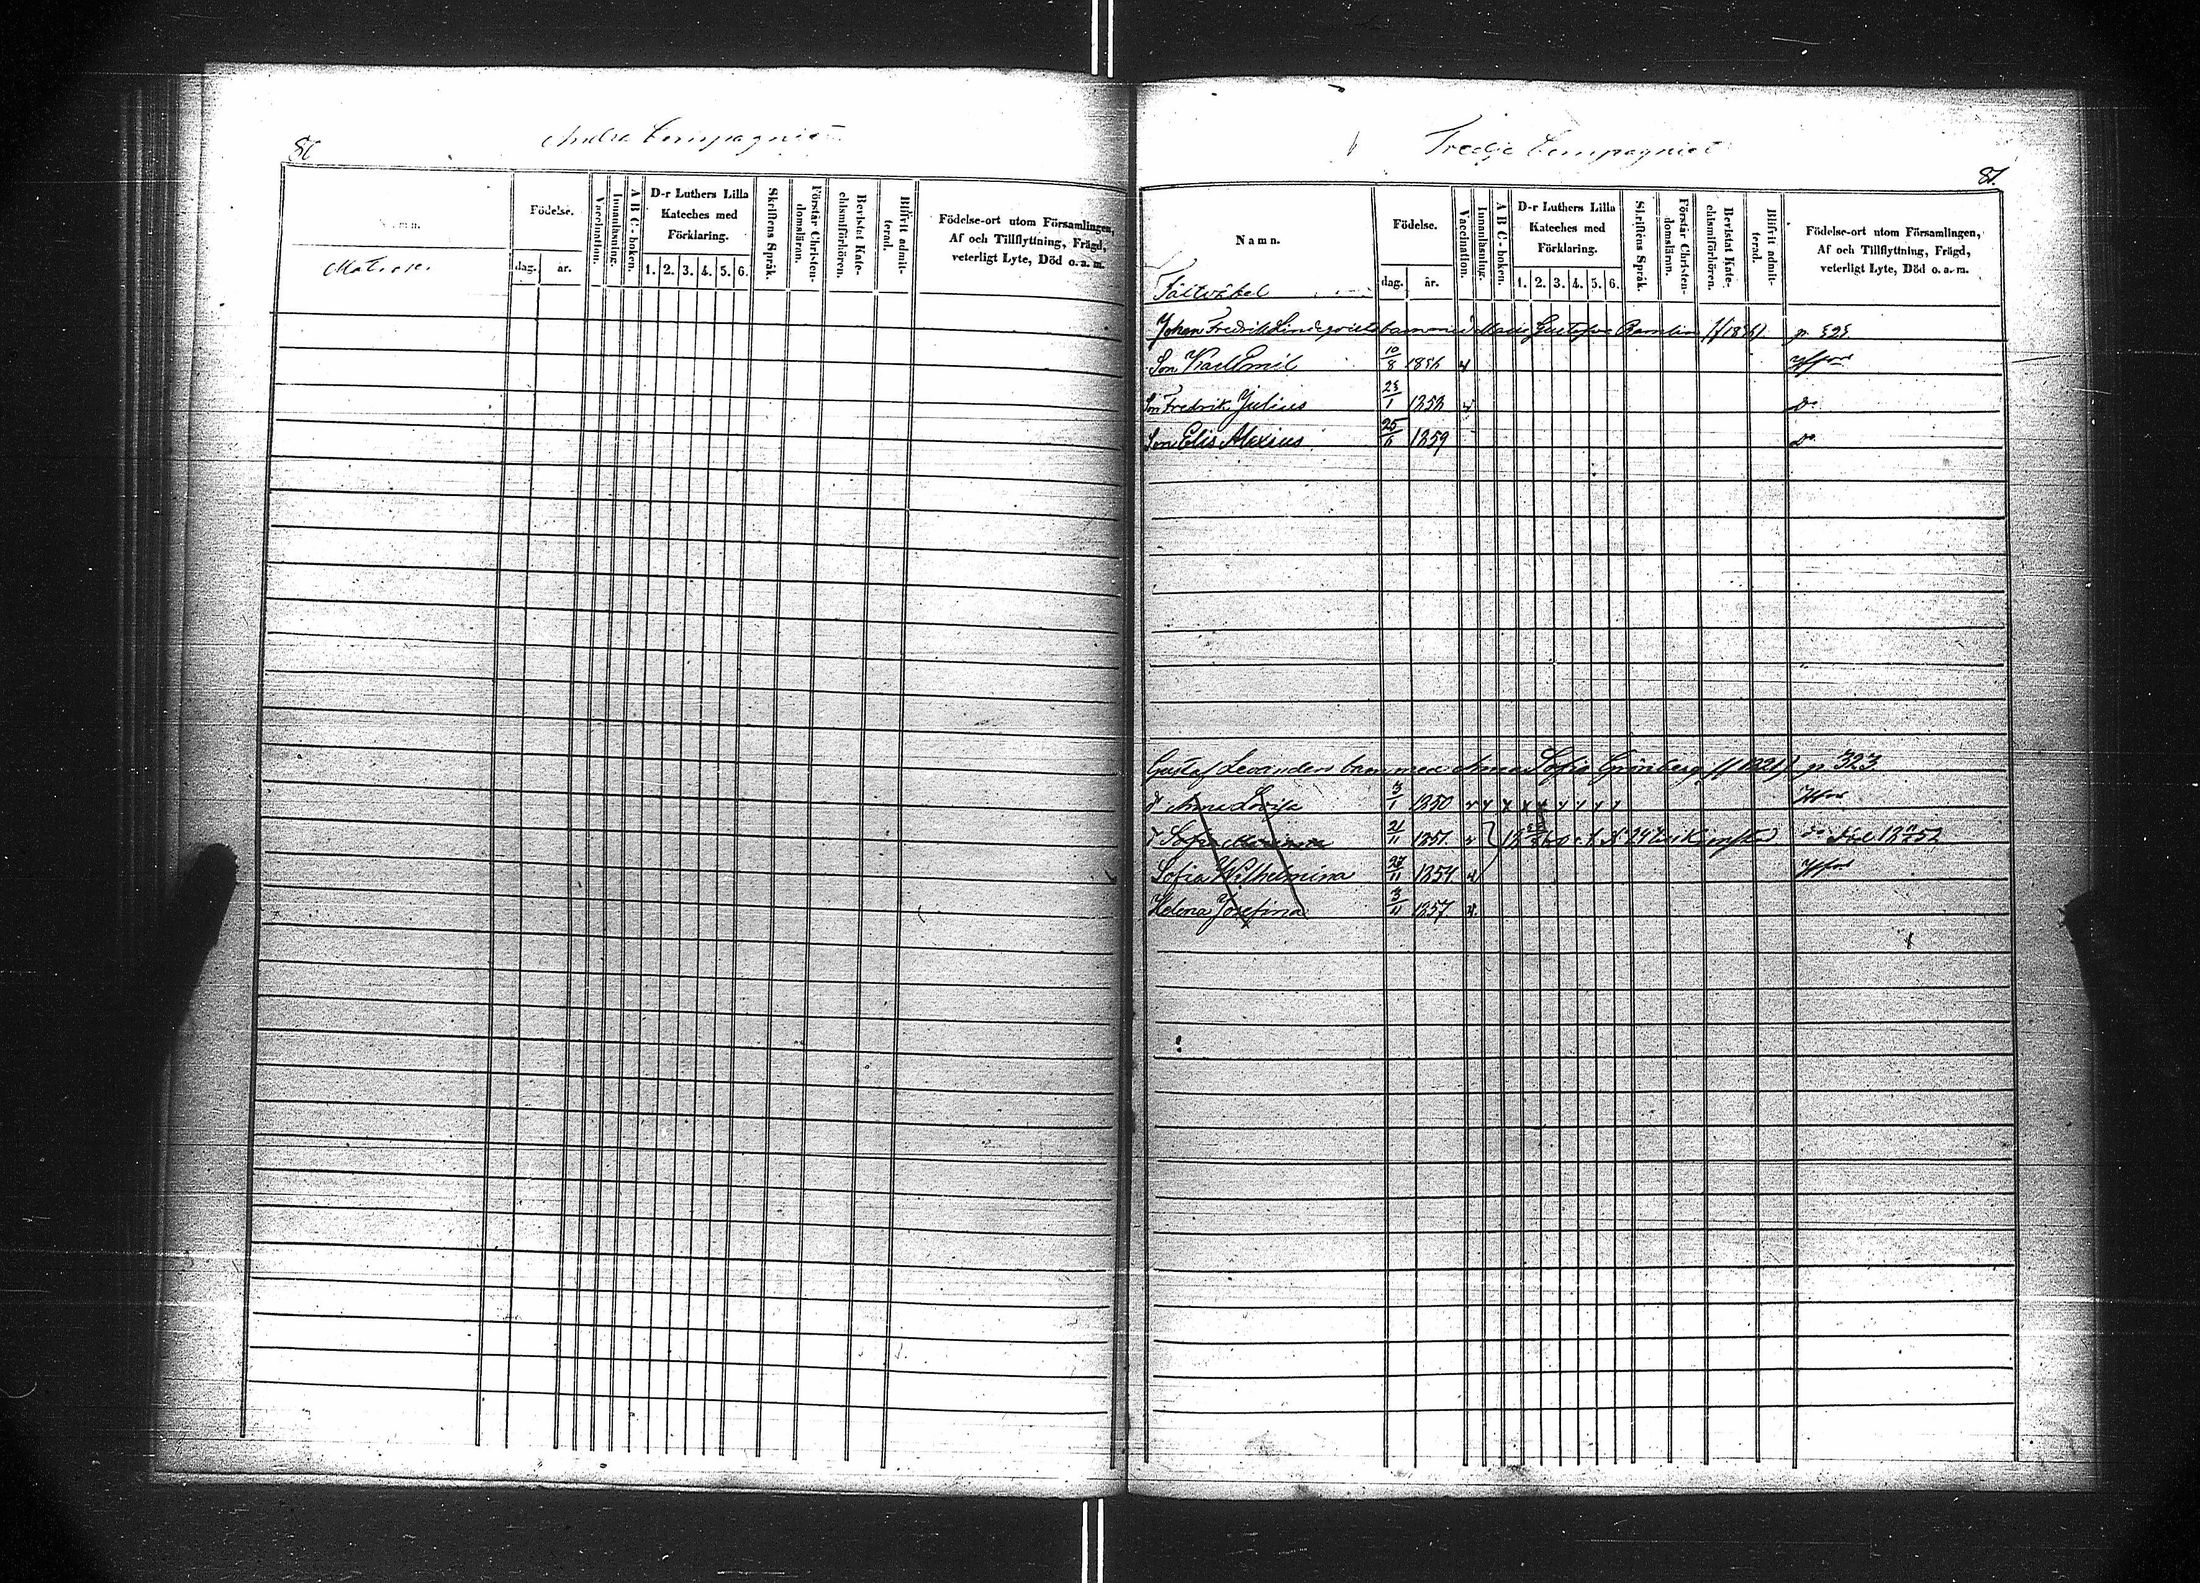 Andra Compagniet
Namn.
Matroser.
Födelse.
dag.
år.
Vaccination.
Innanläsning.
A B C-boken.
D-r Luthers Lilla
Kateches med
Förklaring.
1. 2. 3. 4. 5. 6.
Skriftens Språk.
Förstår Christen-
domsläran.
Bevistat Kate-
chismiförhören.
Blifvit admit-
terad.
Födelse-ort utom Församlingen,
Af och Tillflyttning, Frägd,
veterligt Lyte, Död o. a. m.
Tredje Compagniet
87.
Namn.
Födelse.
dag.
år.
Vaccination.
Innanläsning.
A B C-boken.
D-r Luthers Lilla
Kateches med
Förklaring.
1. 2. 3. 4. 5. 6.
Skriftens Språk.
Förstår Christen-
domsläran.
Bevistat Kate-
chismiförhören.
Blifvit admit-
terad.
Födelse-ort utom Församlingen,
Af och Tillflyttning, Frägd,
veterligt Lyte, Död o. a. m.
Johan Fredrik Lindqvists barn med Maria Gustafva
Son Karl Emil 10/8 Hfors
Son Fredrik Julius 1858 do
Son Elis Alexius 1859 do
Gustaf Levanders barn med Anna Sofia Grönberg (f 1821) p 323
d Anna Lovisa 3/1 1850 Hfors
21/11 1851
Sofia Wilhelmina 27/11 1854 Hfors
Helena Josefina 3/11 1857